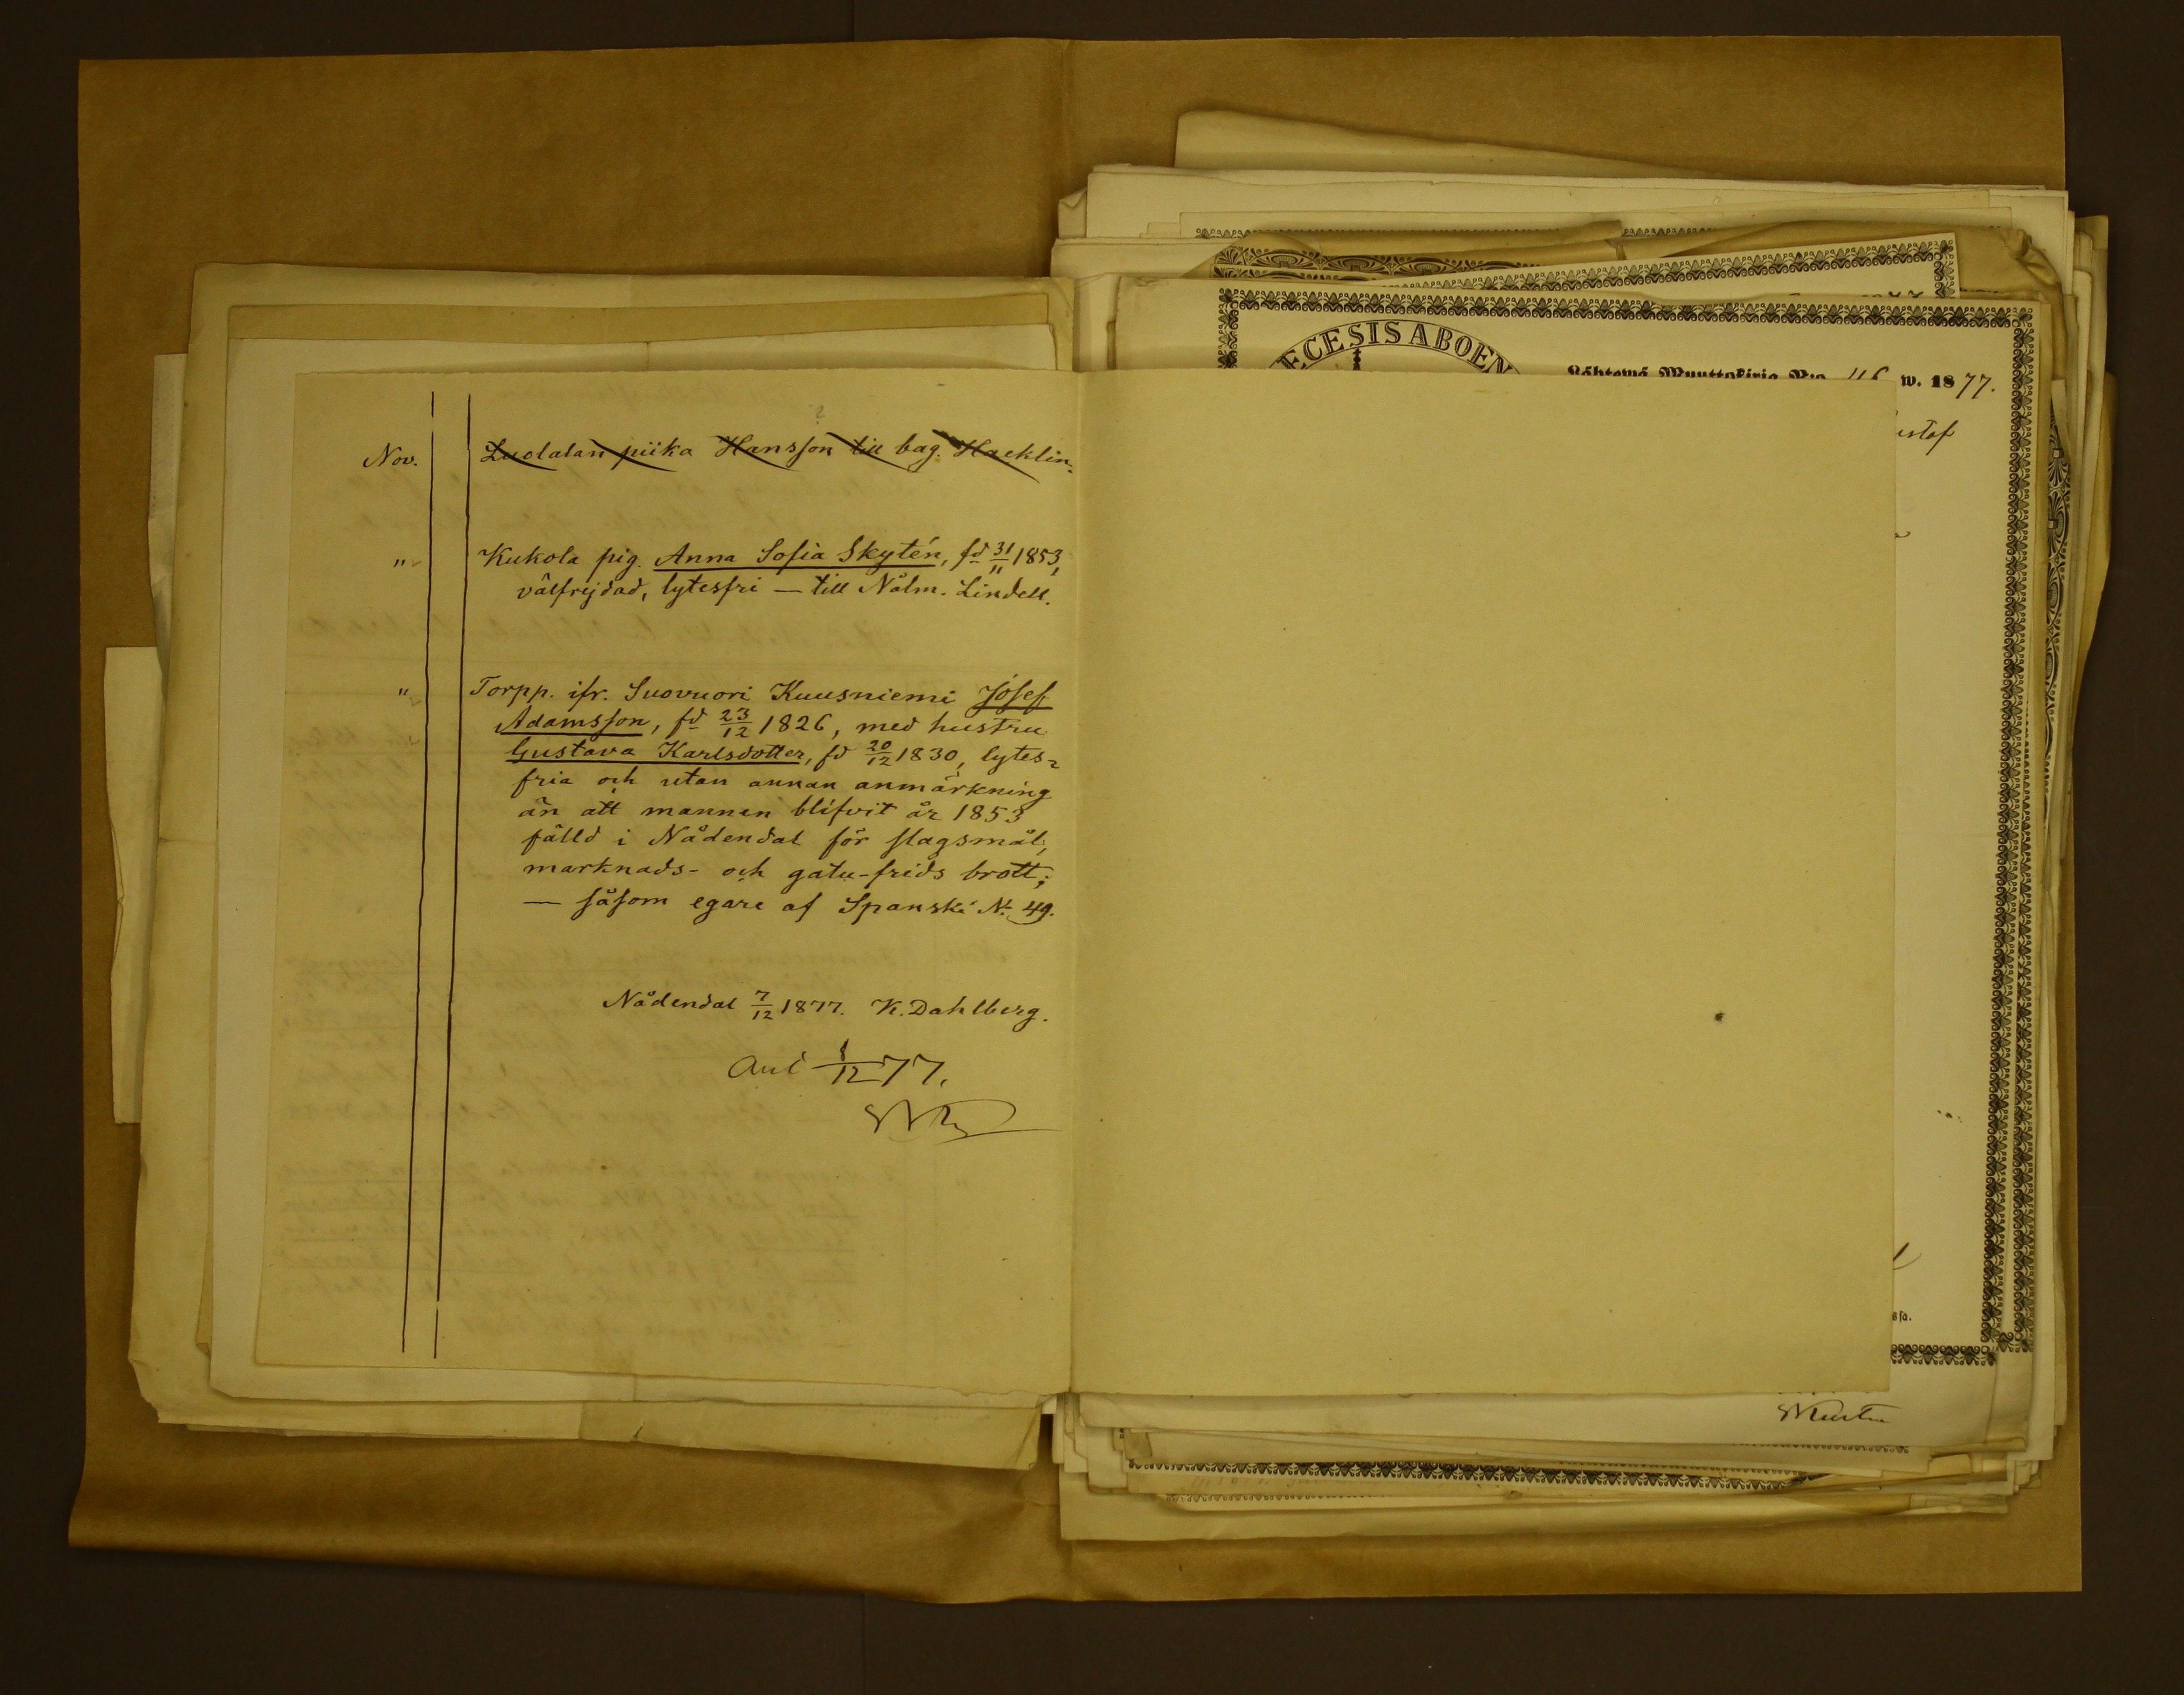 Nov. Luolalan piika Hansson till bag. Hacklin.
" Kukola pig. Anna Sofia Skytén, fd 31/11 1853,
välfrejdad, lytesfri — till Nålm. Lindell.
" Torpp. ifr. Suovuori Kuusniemi Josef
Adamsson, fd 23/12 1826, med hustru
Gustava Karlsdotter, fd 20/12 1830, lytes-
fria och utan annan anmärkning
än att mannen blifvit år 1853
fälld i Nådendal för slagsmål,
marknads- och gatu-frids brott;
— såsom egare af Spanski N. 49.
Nådendal 7/12 1877. K. Dahlberg.
Anl 8/12 77.
ECESIS ABOEN
Lähtewä Muuttokirja N:o 46 w. 1877.
ustaf